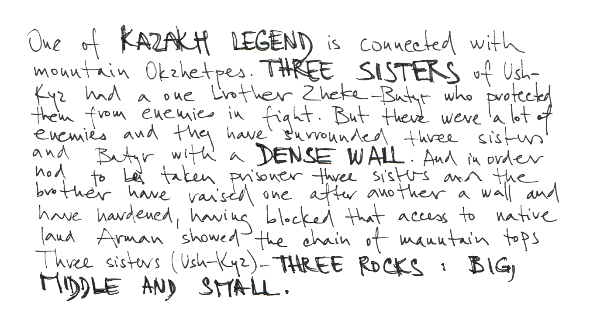 One of KAZAKH LEGEND is connected with
mountain Okzhetpes. THREE SISTERS of Ush-
Kyz had a one brother Zheke-Batyr who protected
them from enemies in fight. But there were a lot of
enemies and they have surrounded three sisters
and Batyr with a DENSE WALL. And in order
nod to be taken prisoner three sisters and the
brother have raised one after another a wall and
have hardened, having blocked that access to native
land Arman showed the chain of mauntain tops
Three sisters (Ush-Kyz)-THREE ROCKS : BIG,
MIDDLE AND SMALL.